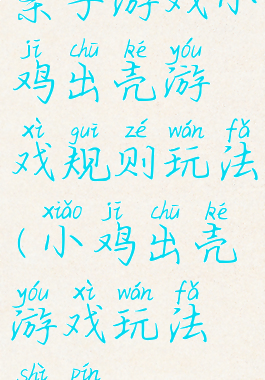 亲子游戏小
jī chū ké yóu
鸡出壳游
xì guī zé wán fǎ
戏规则玩法
xiǎo jī chū ké
(小鸡出壳
yóu xì wán fǎ
游戏玩法
shì pín